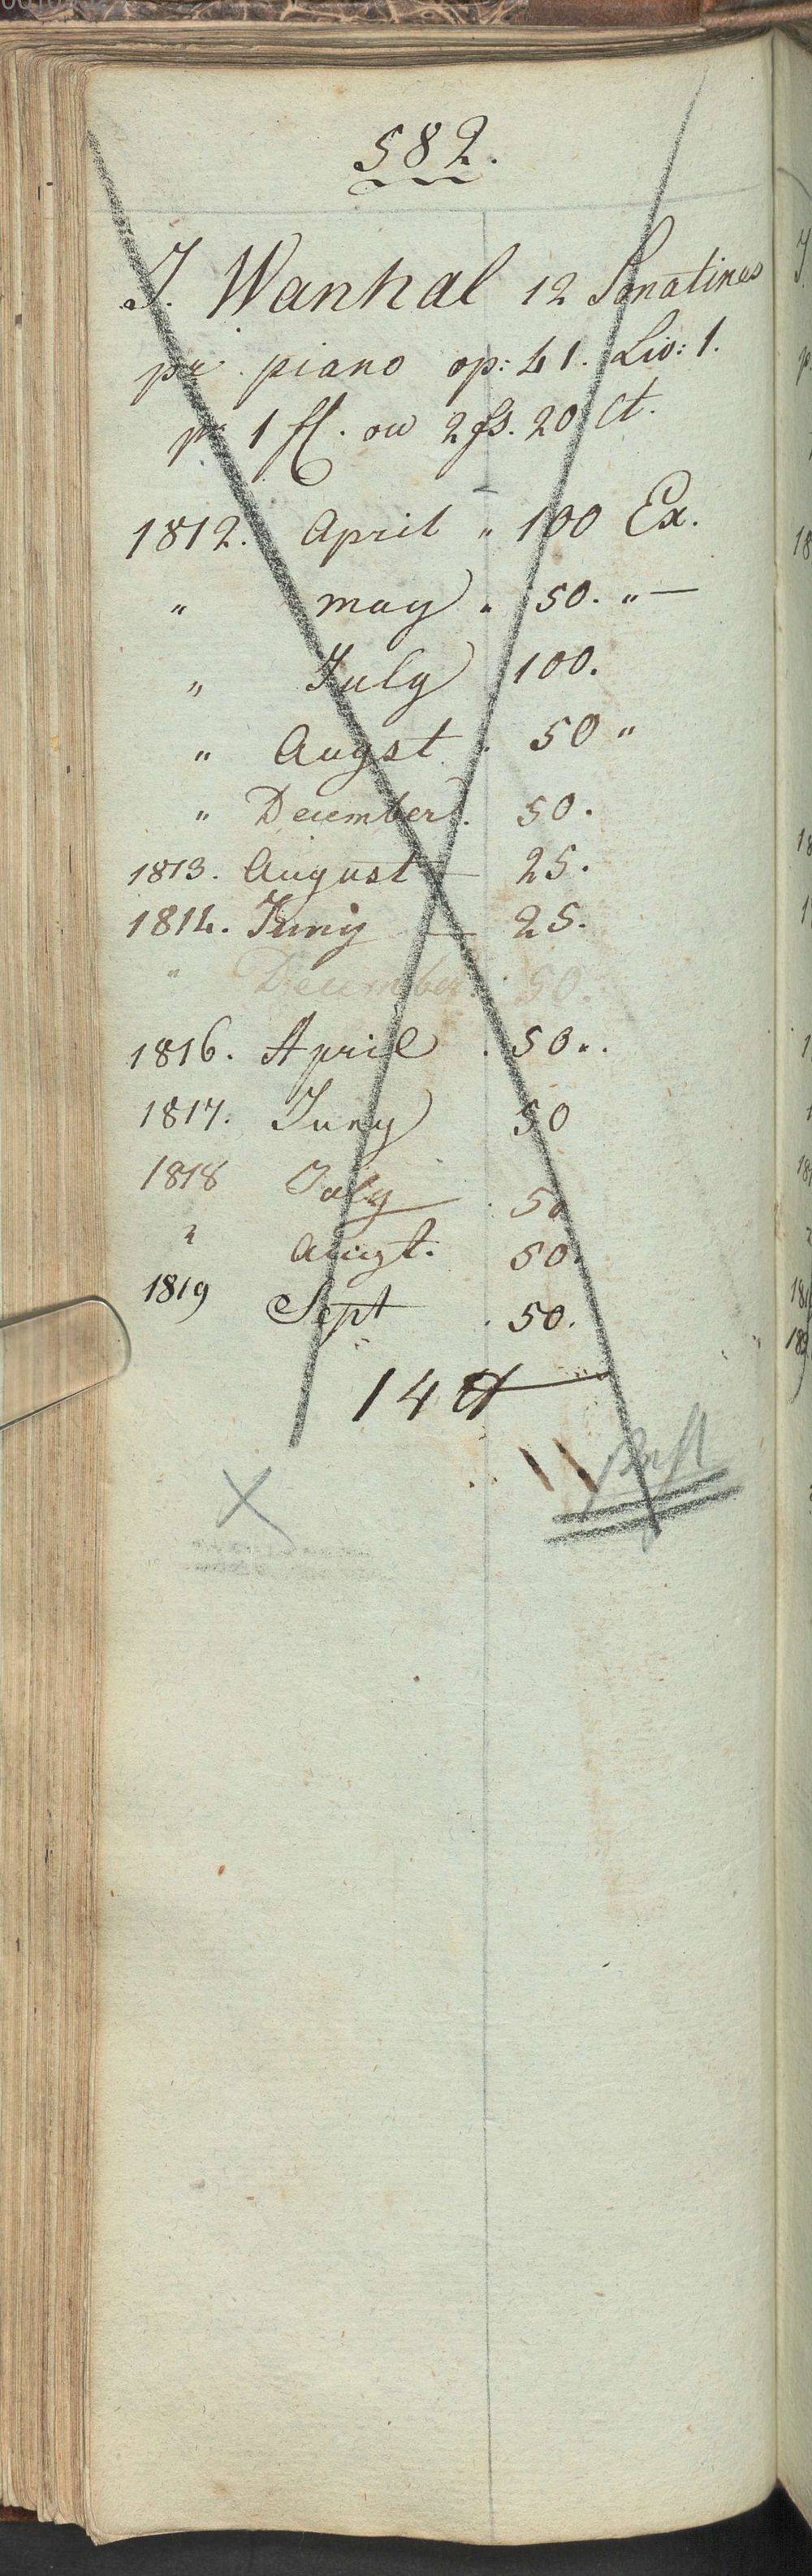 582.
J. Wanhal 12 Sonatines
pr. piano op: 41. Liv: 1.
pr 1 fl. ou 2 fs. 20 Ct.
1812. April " 100 Ex.
" may " 50. " —
" July 100.
" Augst. 50 "
" December. 50.
1813. August — 25.
1814. Juny — 25.
" December. 50.
1816. April . 50..
1817. Juny 50
1818 July . 50
" Augt. 50.
1819 Sept . 50.